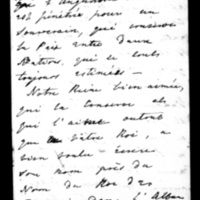 est pénétré pour un
Souverain, qui conserve
la Paix entre deux
Nations, qui se sont
toujours estimées —
Notre Reine bien aimée,
qui la conserve et
qui l'aime autant
que Votre Roi, a
bien voulu écrire
son nom près du
Nom du Roi des
dans l'Album